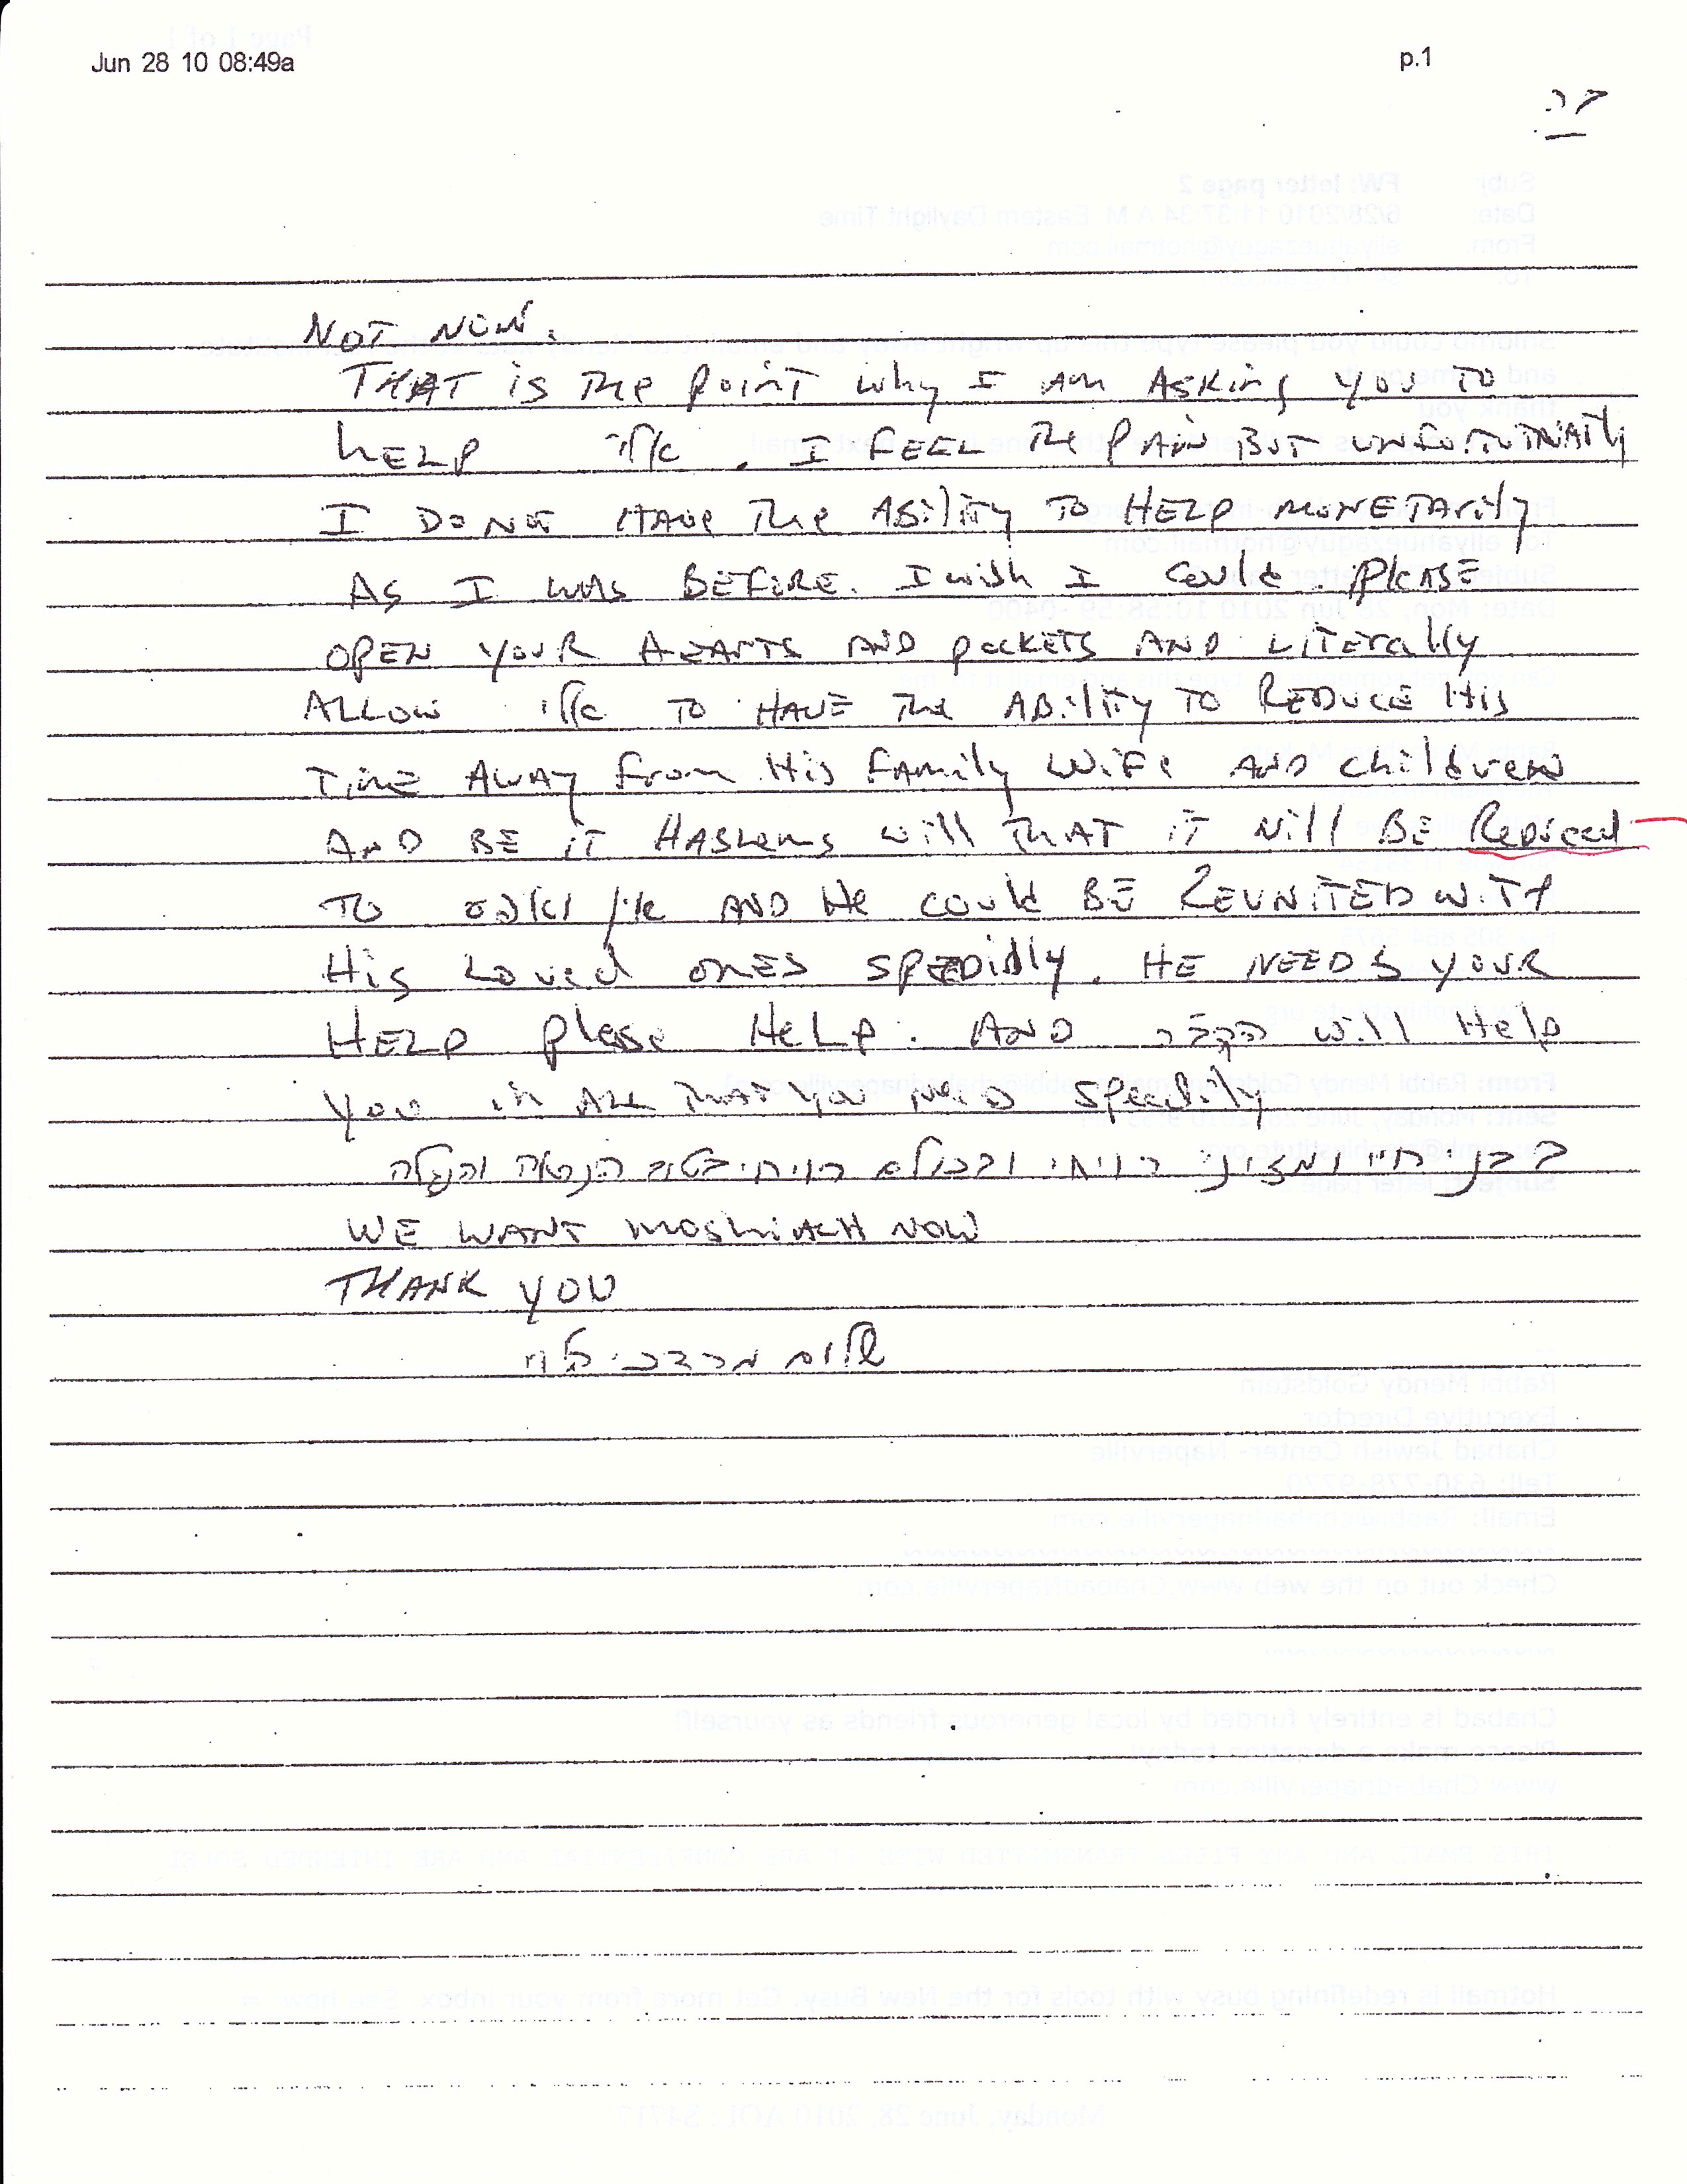 Jun 28 10 08:49a
p.1
NOT NOW.
THAT is The point why I am Asking you TO
HELP . I FEEL The PAIN BUT UNFORTUNATly
I DO NOT HAVE The ABility TO HELP MONETArily
AS I WAS BEFORE. I wish I could. PLEASE
OPEN YOUR HEARTS AND pockets AND LITErally
ALLOW TO HAVE The ABility TO REDUCE His
TIME AWAY from His FAMily WiFe AND children
AND BE iT HASHems will THAT iT will BE Reduced
TO AND He could BE REUNITED WITH
His Loved ONES SPEEDidly. HE NEEDS YOUR
HELP please HELP. AND הקב"ה will Help
you in ALL THAT you NEED speedily
בבני חיי ומזוני רויחי ובכולם רויחי בטוב הנראה והנגלה
WE WANT MOSHIACH NOW
THANK YOU
שלום מרדכי הלוי